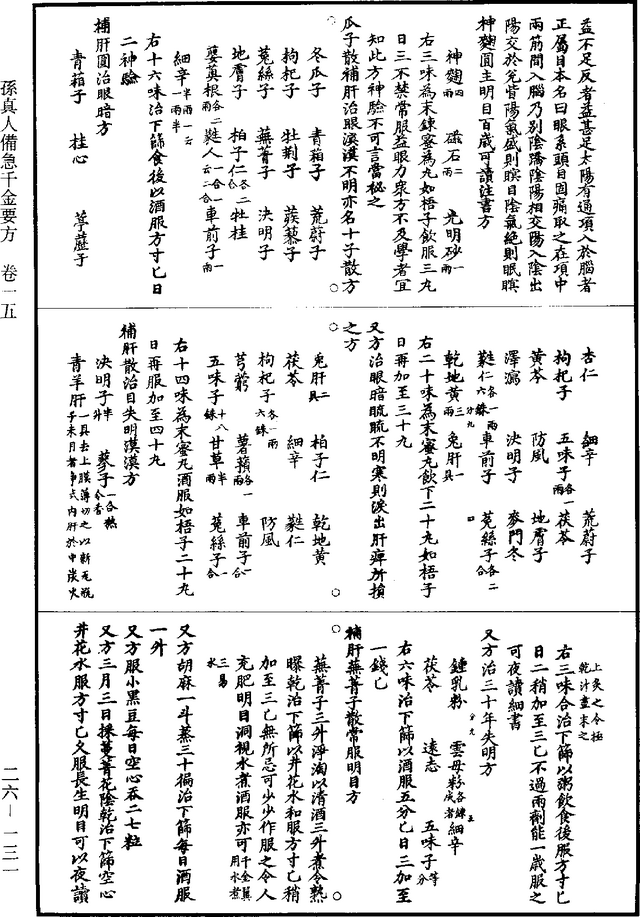 益不足反者益甚足太陽有通項入於腦者
正屬目本名曰眼系頭目固痛取之在項中
兩筋間入腦乃別陰蹻陰陽相交陽入陰出
陽交於兊眥陽氣盛則瞋目陰氣絕則眠瞑
神麯圓主明目百歲可讀注書方
神麯四兩 磁石二兩 光明砂一兩
右三味為末鍊蜜為丸如梧子飲服三丸
日三不禁常服益眼力衆方不及學者宜
知此方神驗不可言當秘之
瓜子散補肝治眼漠漠不明亦名十子散方
冬瓜子 青葙子 茺蔚子
枸杞子 牡荆子 蒺藜子
菟絲子 蕪菁子 決明子
地膚子 柏子仁各二合 牡桂
蕤仁一合云二合 車前子一兩
細辛半兩一云一兩半
右十六味治下篩食後以酒服方寸匕日
二神驗
補肝圓治眼暗方
青葙子 桂心 葶藶子
杏仁 細辛 茺蔚子
枸杞子 五味子各一兩 茯苓
黃芩 防風 地膚子
澤瀉 決明子 麥門冬
蕤仁各一兩六銖 車前子 菟絲子各二合
乾地黃二兩 兔肝一具
右二十味為末蜜丸飲下二十丸如梧子
日再加至三十丸
又方治眼暗䀮䀮不明寒則淚出肝痺所損
之方
兔肝二具 柏子仁 乾地黃
茯苓 細辛 蕤仁
枸杞子各一兩六銖 防風
芎藭 薯蕷各一兩 車前子一合
五味子十八銖 甘草半兩 菟絲子一合
右十四味為末蜜丸酒服如梧子二十丸
日再服加至四十丸
補肝散治目失明漠漠方
決明子半升 蓼子一合熬令香
青羊肝一具去上膜薄切之以新瓦瓶子未用者淨拭內肝於中炭火
上炙之令極乾汁盡末之
右三味合治下篩以粥飲食後服方寸匕
日二稍加至三匕不過兩劑能一歲服之
可夜讀細書
又方治三十年失明方
鍾乳粉 雲母粉 細辛
茯苓 遠志 五味子等分
右六味治下篩以酒服五分匕日三加至
一錢匕
補肝蕪菁子散常服明目方
蕪菁子三升淨淘以清酒三升煮令熟
曝乾治下篩以井花水和服方寸匕稍
加至三匕無所忌可少少作服之令人
充肥明目洞視水煮酒服亦可千金翼用水煮三易水
又方胡麻一斗蒸三十徧治下篩每日酒服
一升
又方服小黑豆每日空心吞二七粒
又方三月三日採蔓菁花陰乾治下篩空心
井花水服方寸匕久服長生明目可以夜讀
孫真人備急千金要方 卷一五
二六—一三一